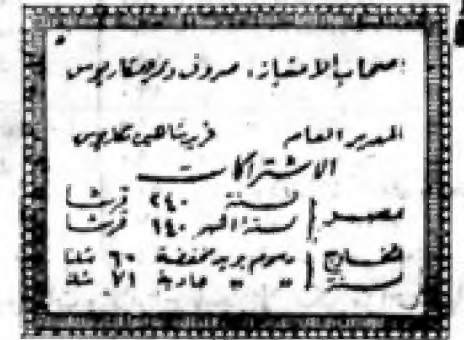 اصحاب الامتياز: صروف ونمر ومكاريوس
المدير العام فريد شاهين مكاريوس
الاشتراكات
مصر لسنة ٢٤٠ قرشا
لستة اشهر ١٤٠ قرشا
الخارج رسوم بريد مخفضة ٦٠ شلنا
لسنة " " عادية ٧١ شلنا